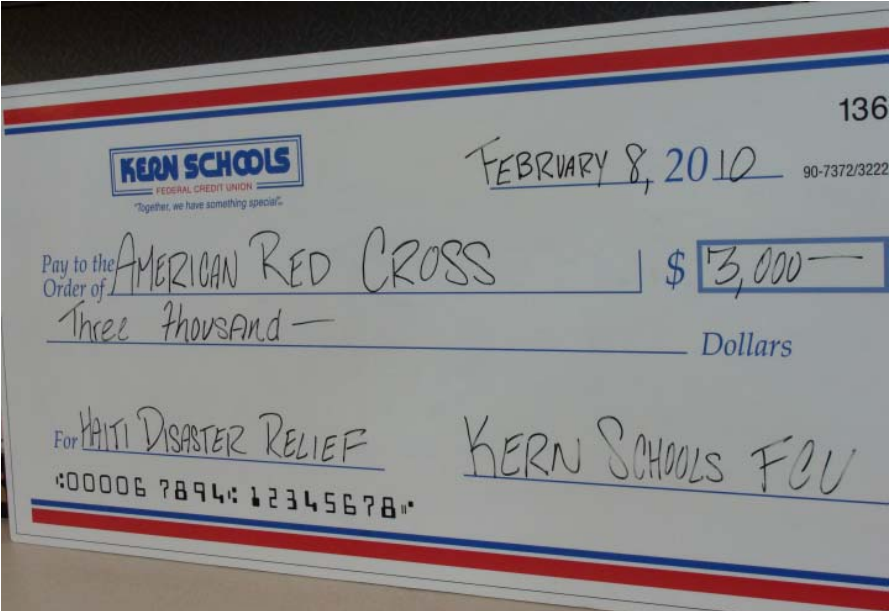 136
KERN SCHOOLS
FEDERAL CREDIT UNION
"Together, we have something special"
FEBRUARY 8, 2010
90-7372/3222
Pay to the Order of AMERICAN RED CROSS $ 3,000—
Three thousand — Dollars
For HAITI DISASTER RELIEF KERN SCHOOLS FCU
⑆00006 7894⑆ 12345678⑈